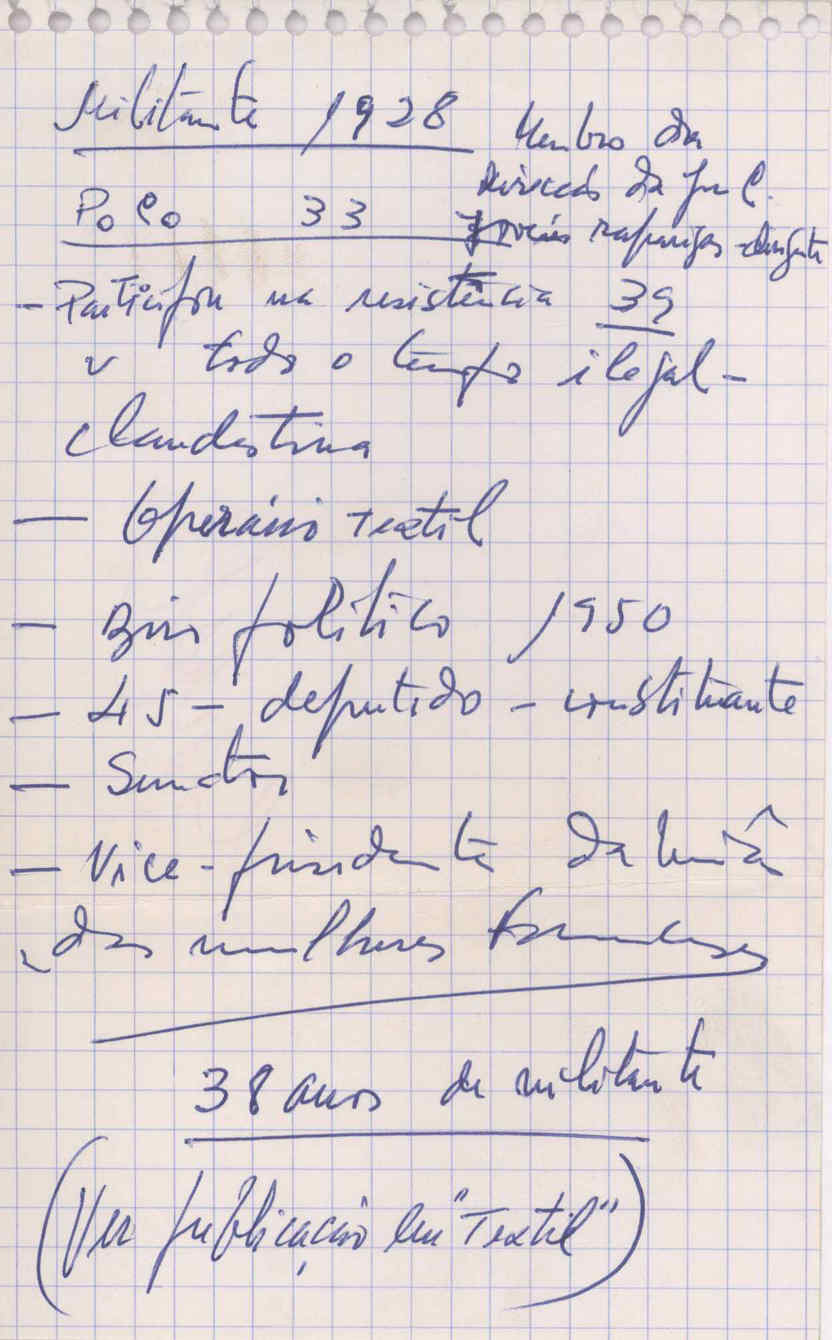 Militante 1928
Membro da
Direcção da Ju C.
Jovens raparigas - dirigente
Po Co 33
- Participou na resistência 39
v todo o tempo ilegal -
clandestina
- Operário Textil
- Biro político 1950
- 45 - deputado - constituante
-
- Vice-presidente da União
das mulheres francesas
38 anos de militante
(Ver publicação em "Textil")